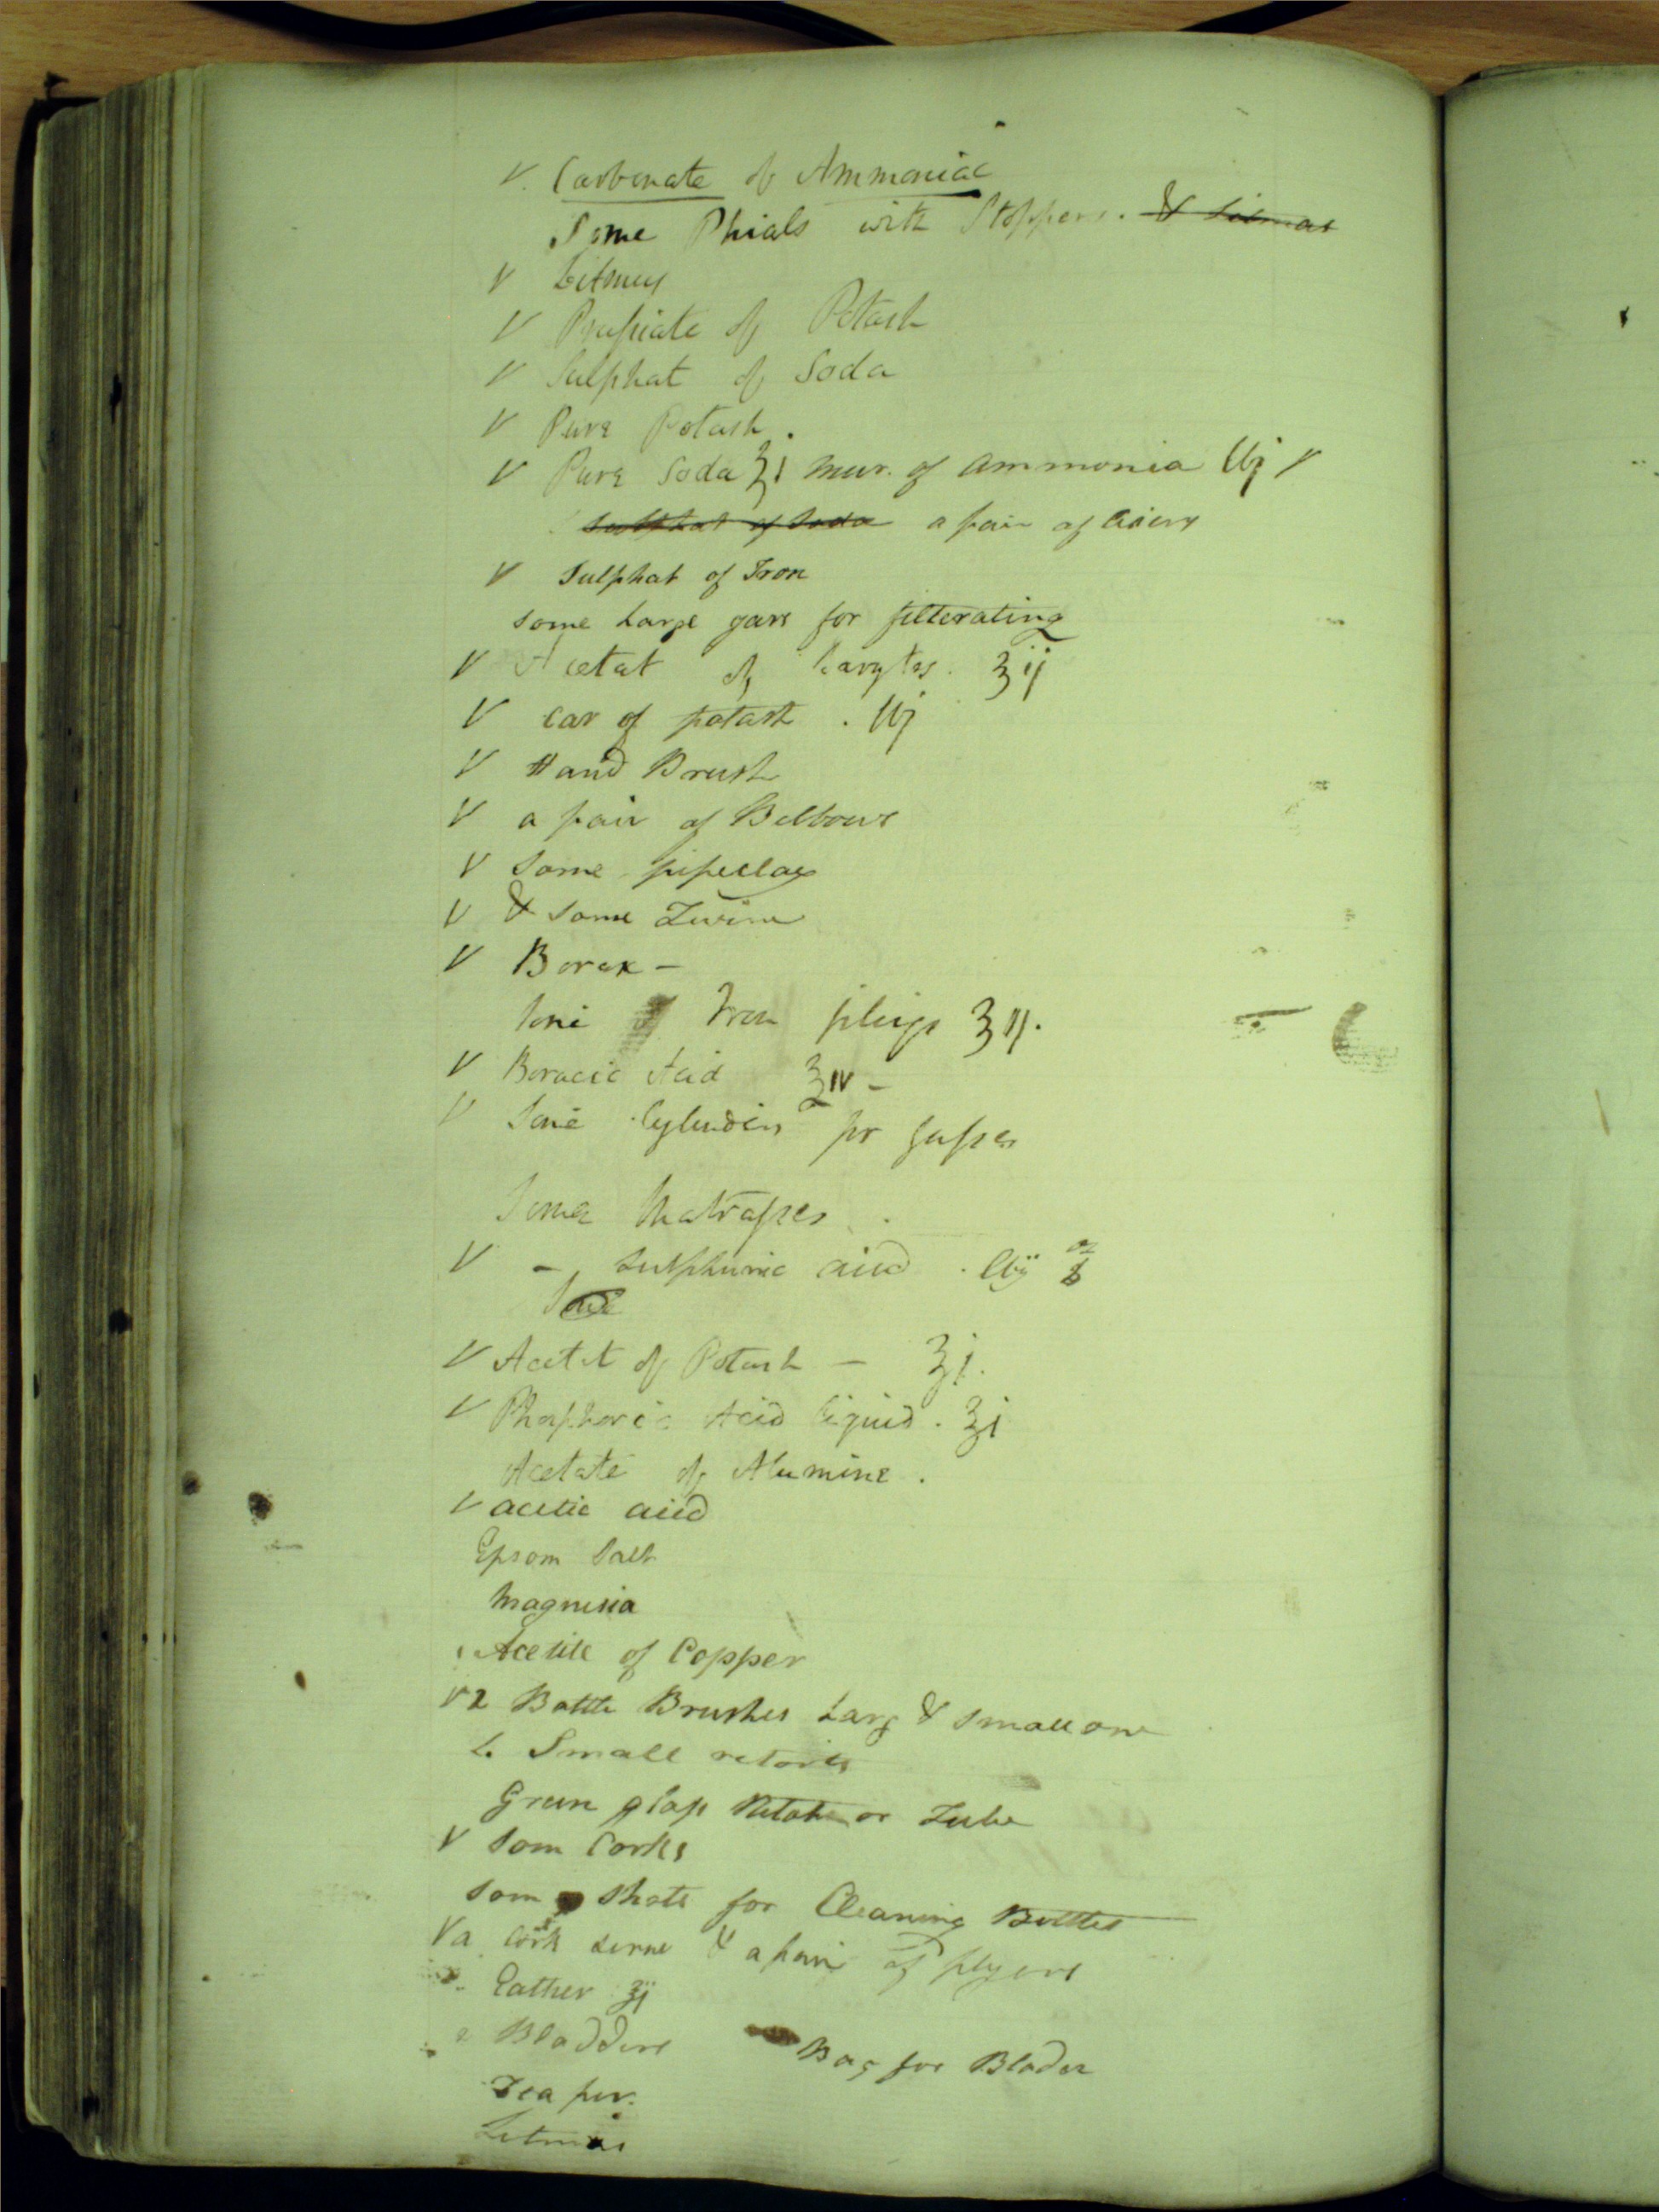 V. Carbonate of Ammoniac
Some Phials with Stoppers. & Litmas
V Litmus
V Prussiate of Potash
V Sulphat of Soda
V Pure Potash.
V Pure Soda ℥i Mur. of ammonia lbj V
Sulphat of Soda a pair of
V Sulphat of Iron
some Large gars for filterating
V Acetat of barytes. ℥ij
V Car of potash. lbj
V Hand Brush
V a pair of Bellows
V Some pipeclay
V & Some Twine
V Borax -
Some Iron filings ℥ij.
V Boracic Acid ℥iv -
V Some Cylinders for gasses
Some Matrasses.
V - Sulphuric acid. lbij
V Acetat of Potash - ℥j.
V Phosphoric Acid liquid. ℥j
Acetate of Alumine.
V acetic acid
Epsom Salt
Magnesia
Acetite of Copper
V 2 Bottle Brushes Larg & small one
Small retorts
Green glass or Tube
V Som Corks
Som Shots for Cleaning Bottles
V a Cork & a pair of plyers
Eather ℥ij
Bladders Bag for Blader
Litmas